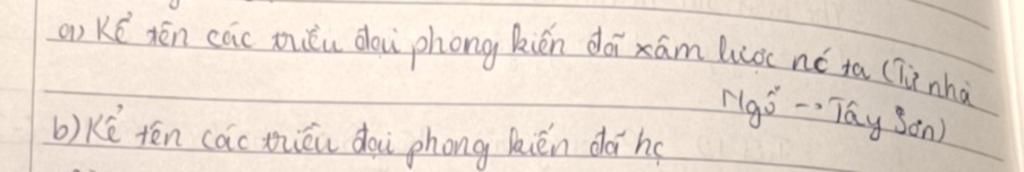 a) Kể tên các triều đại phong kiến đã xâm lược nć ta (Từ nhà
Ngô --> Tây Sơn)
b) Kể tên các triều đại phong kiến đã hc